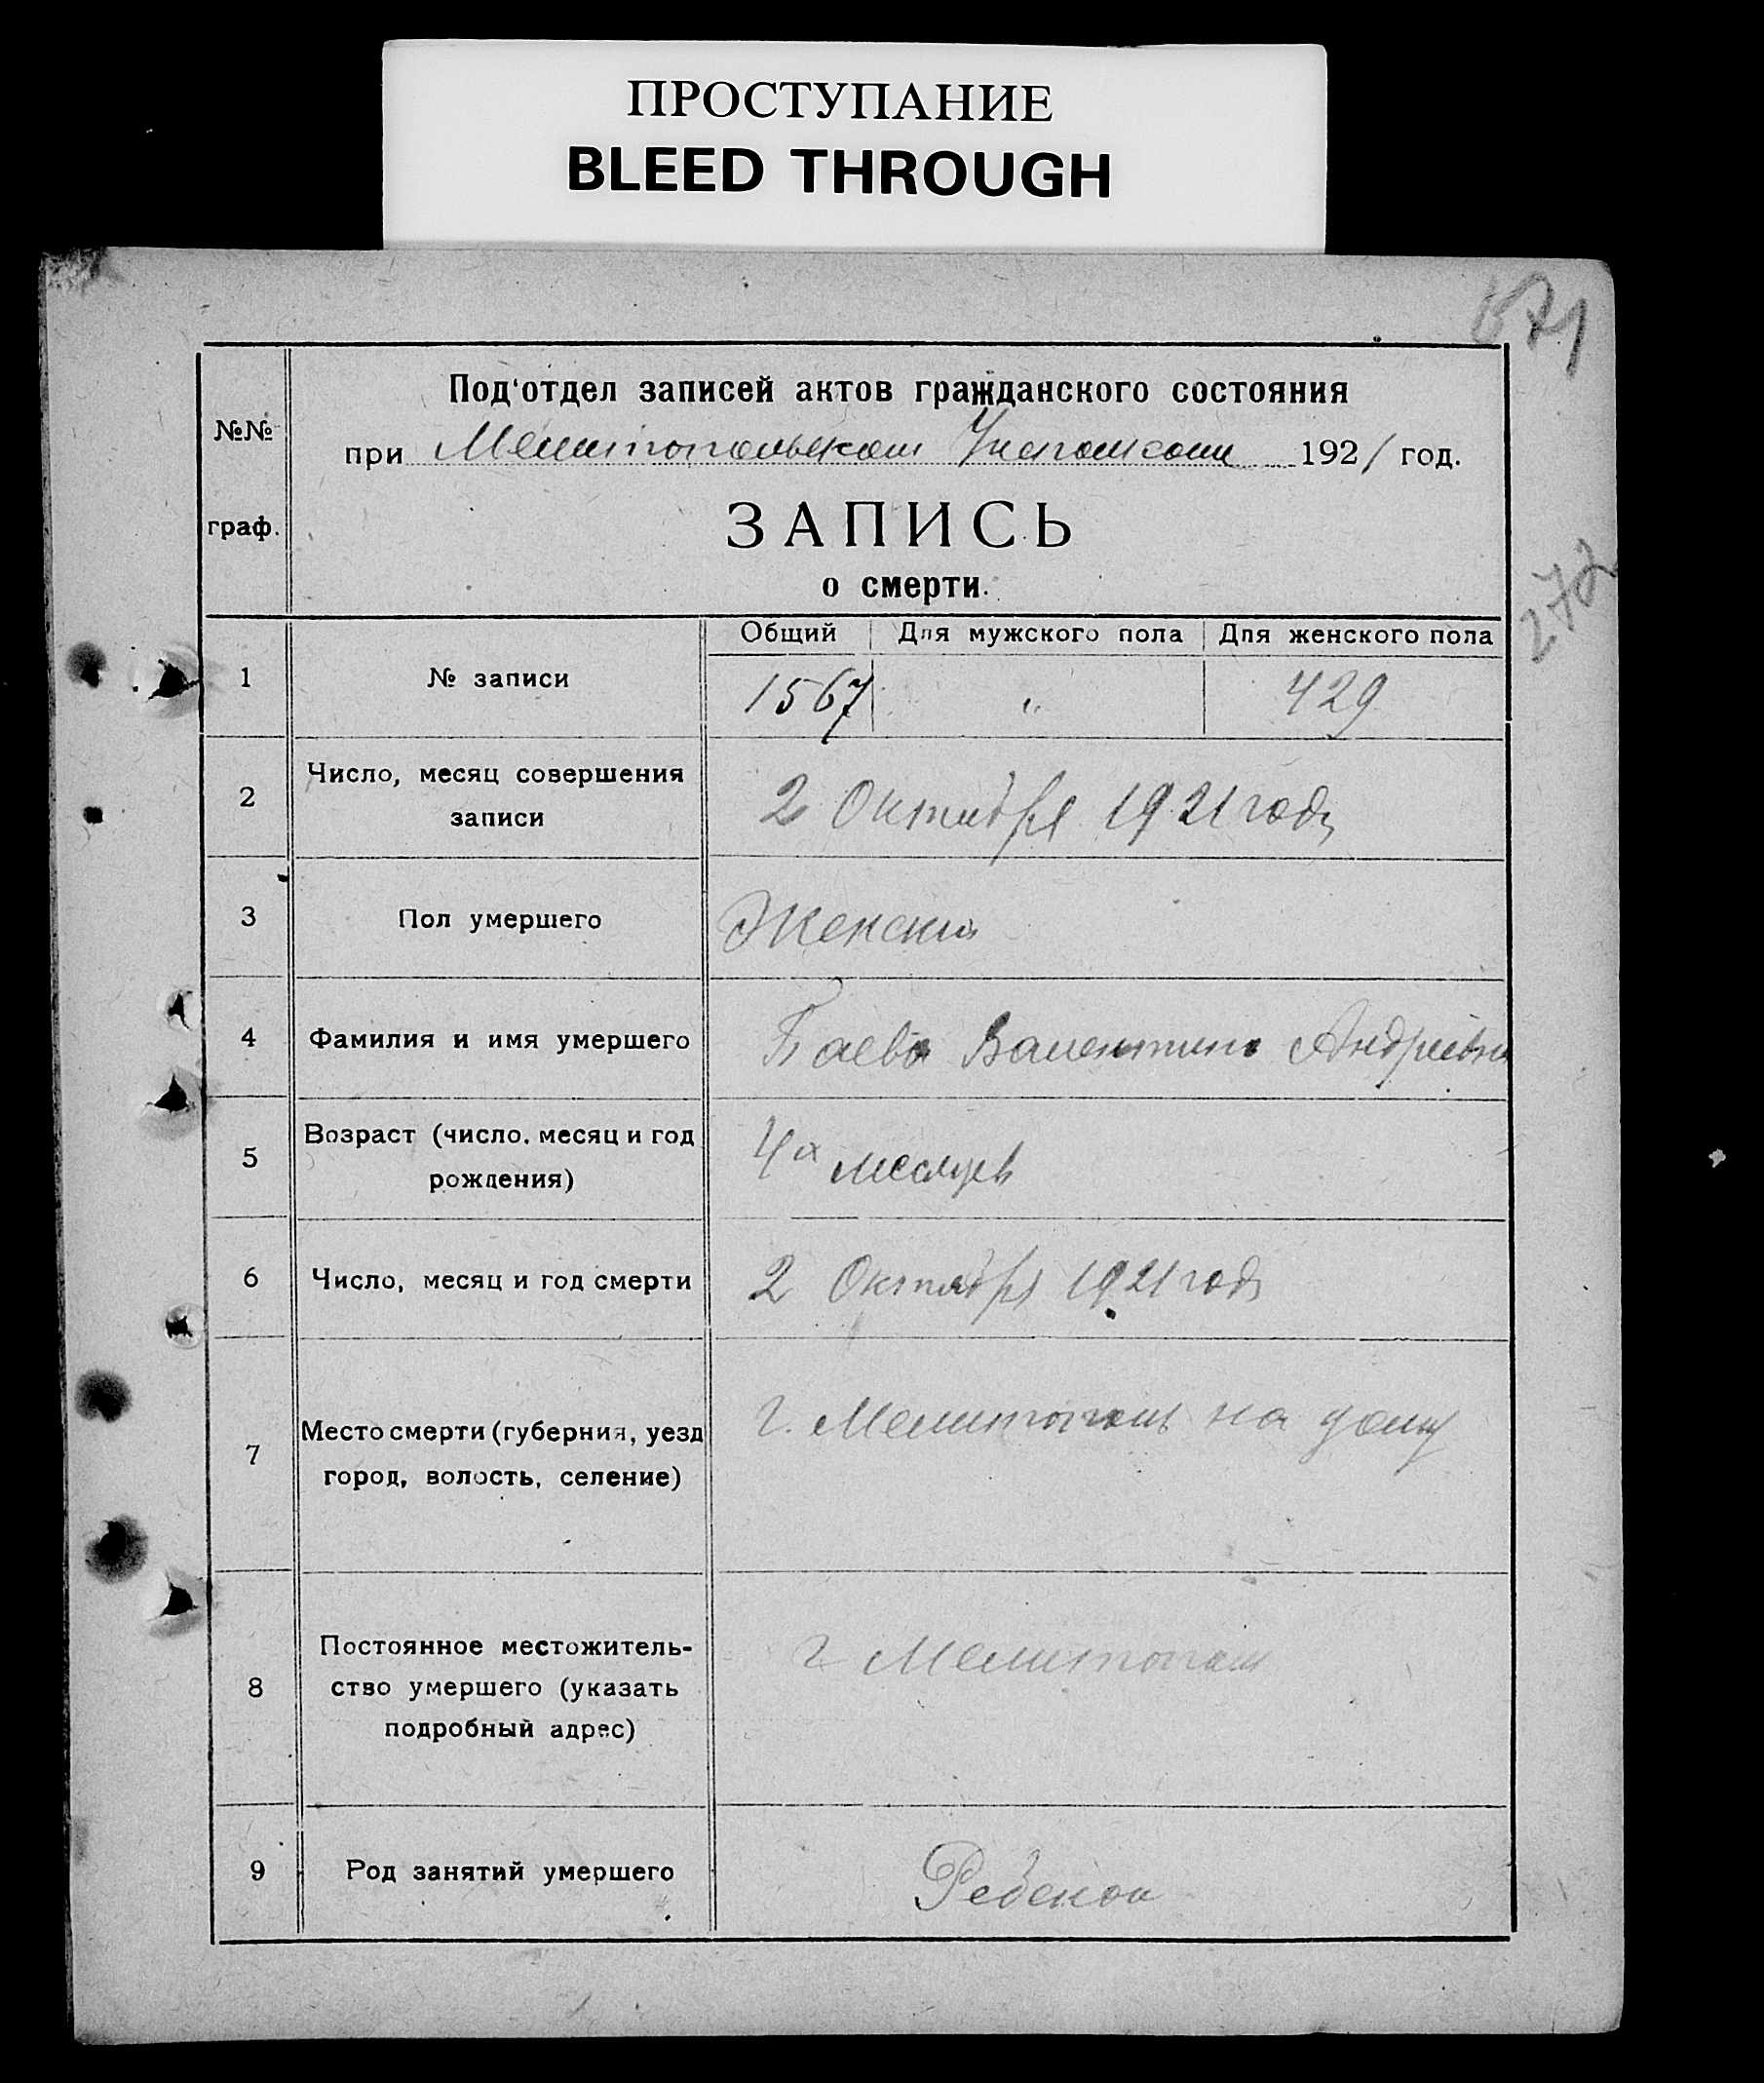 ПРОСТУПАНИЕ
BLEED THROUGH
671
Под'отдел записей актов гражданского состояния
№№
при Мелитопольском Уисполкоме 1921 год.
граф.
ЗАПИСЬ
о смерти.
272
Общий Для мужского пола Для женского пола
1 № записи 1567 " 429
2 Число, месяц совершения
записи
2 Октября 1921 года
3 Пол умершего Женский
4 Фамилия и имя умершего Баева Валентина Андреевна
5 Возраст (число, месяц и год
рождения)
4х месяцев
6 Число, месяц и год смерти 2 Октября 1921 года
7 Место смерти (губерния, уезд
город, волость, селение)
г. Мелитополь на дому
8 Постоянное местожитель-
ство умершего (указать
подробный адрес)
г. Мелитополь
9 Род занятий умершего Ребенок